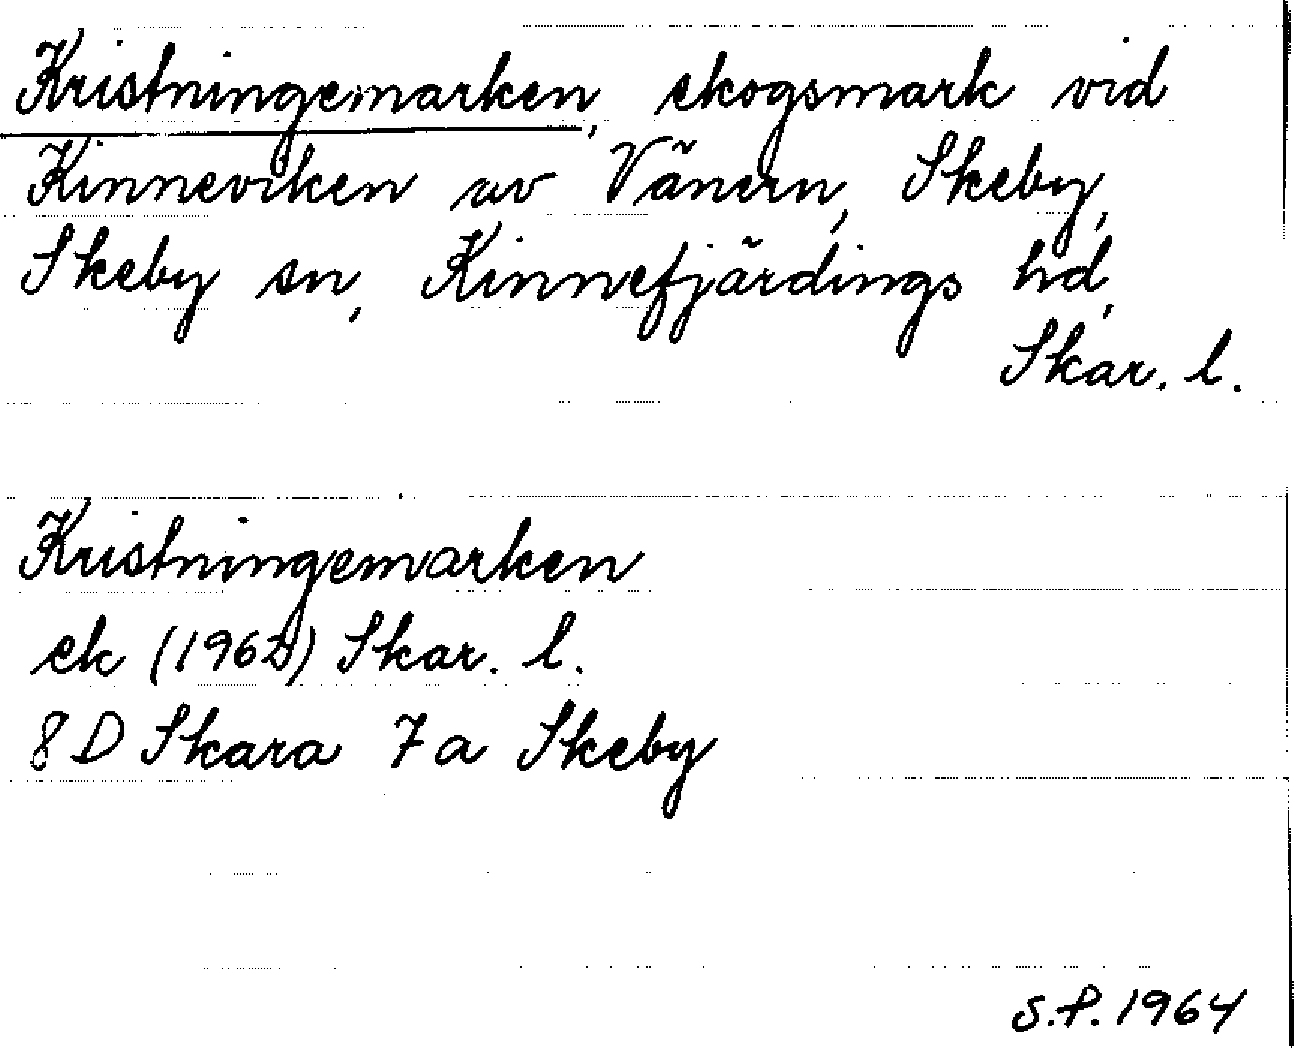 Kristningemarken, skogsmark vid
Kinneviken av Vänern, Skeby,
Skeby sn, Kinnefjärdings hd,
Skar. l.
Kristningemarken
ek (1962) Skar. l.
8 D Skara 7a Skeby
S.P. 1964